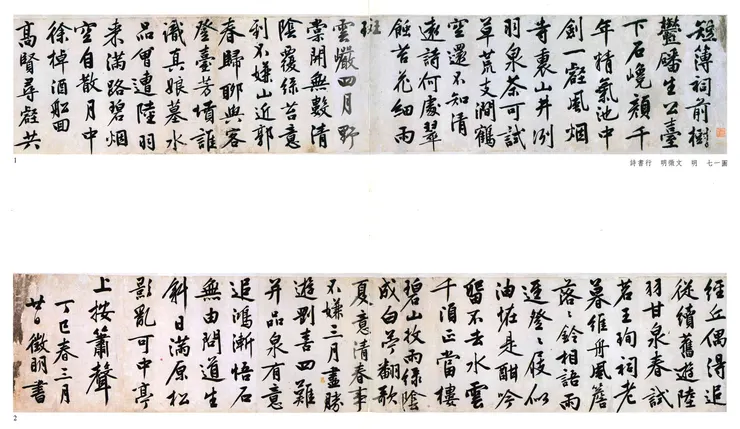 短簿祠前樹
鬱蟠生公臺
下石巉顏千
年精氣池中
劍一壑風烟
寺裏山井冽
羽泉茶可試
草荒支澗鶴
空還不知清
遠詩何處翠
蝕苔花細雨
斑
雲巖四月野
棠開無數清
陰覆綠苔意
到不嫌山近郭
春歸聊與客
登臺芳墳誰
識真娘墓水
品曾遭陸羽
來滿路碧烟
空自散月中
徐棹酒船回
高賢尋壑共
1
圖一七 明 文徵明 行書詩
經丘偶得追
從續舊遊陸
羽甘泉春試
茗王珣祠老
暮維舟風簷
落〻鈴相語雨
逕登〻屐似
油坵是酣吟
留不去水雲
千頃正當樓
碧山收雨綠陰
成白苧翻歌
夏意清春事
不嫌三月盡勝
遊剛喜四難
并品泉有意
追鴻漸悟石
無由問道生
斜日滿原松
影亂可中亭
上按簫聲
丁巳春三月
廿日徵明書
2